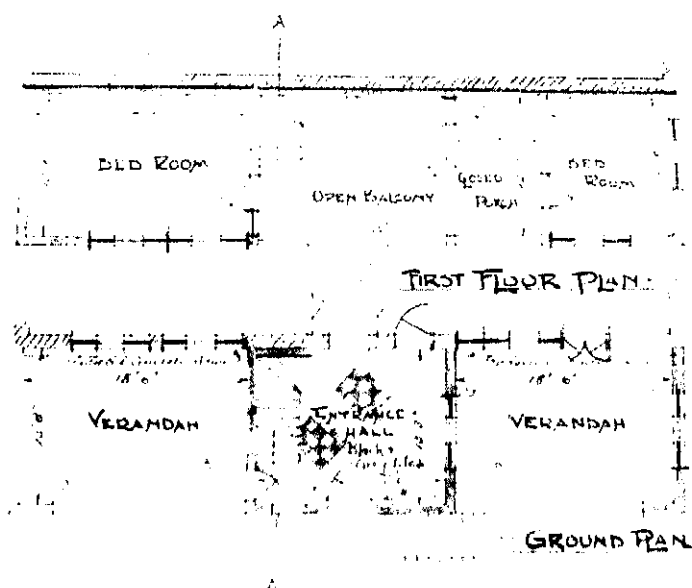 A
BED ROOM
OPEN BALCONY
CLOSED PORCH
BED ROOM
FIRST FLOOR PLAN
18' 0"
18' 0"
VERANDAH
ENTRANCE HALL
VERANDAH
GROUND PLAN
A